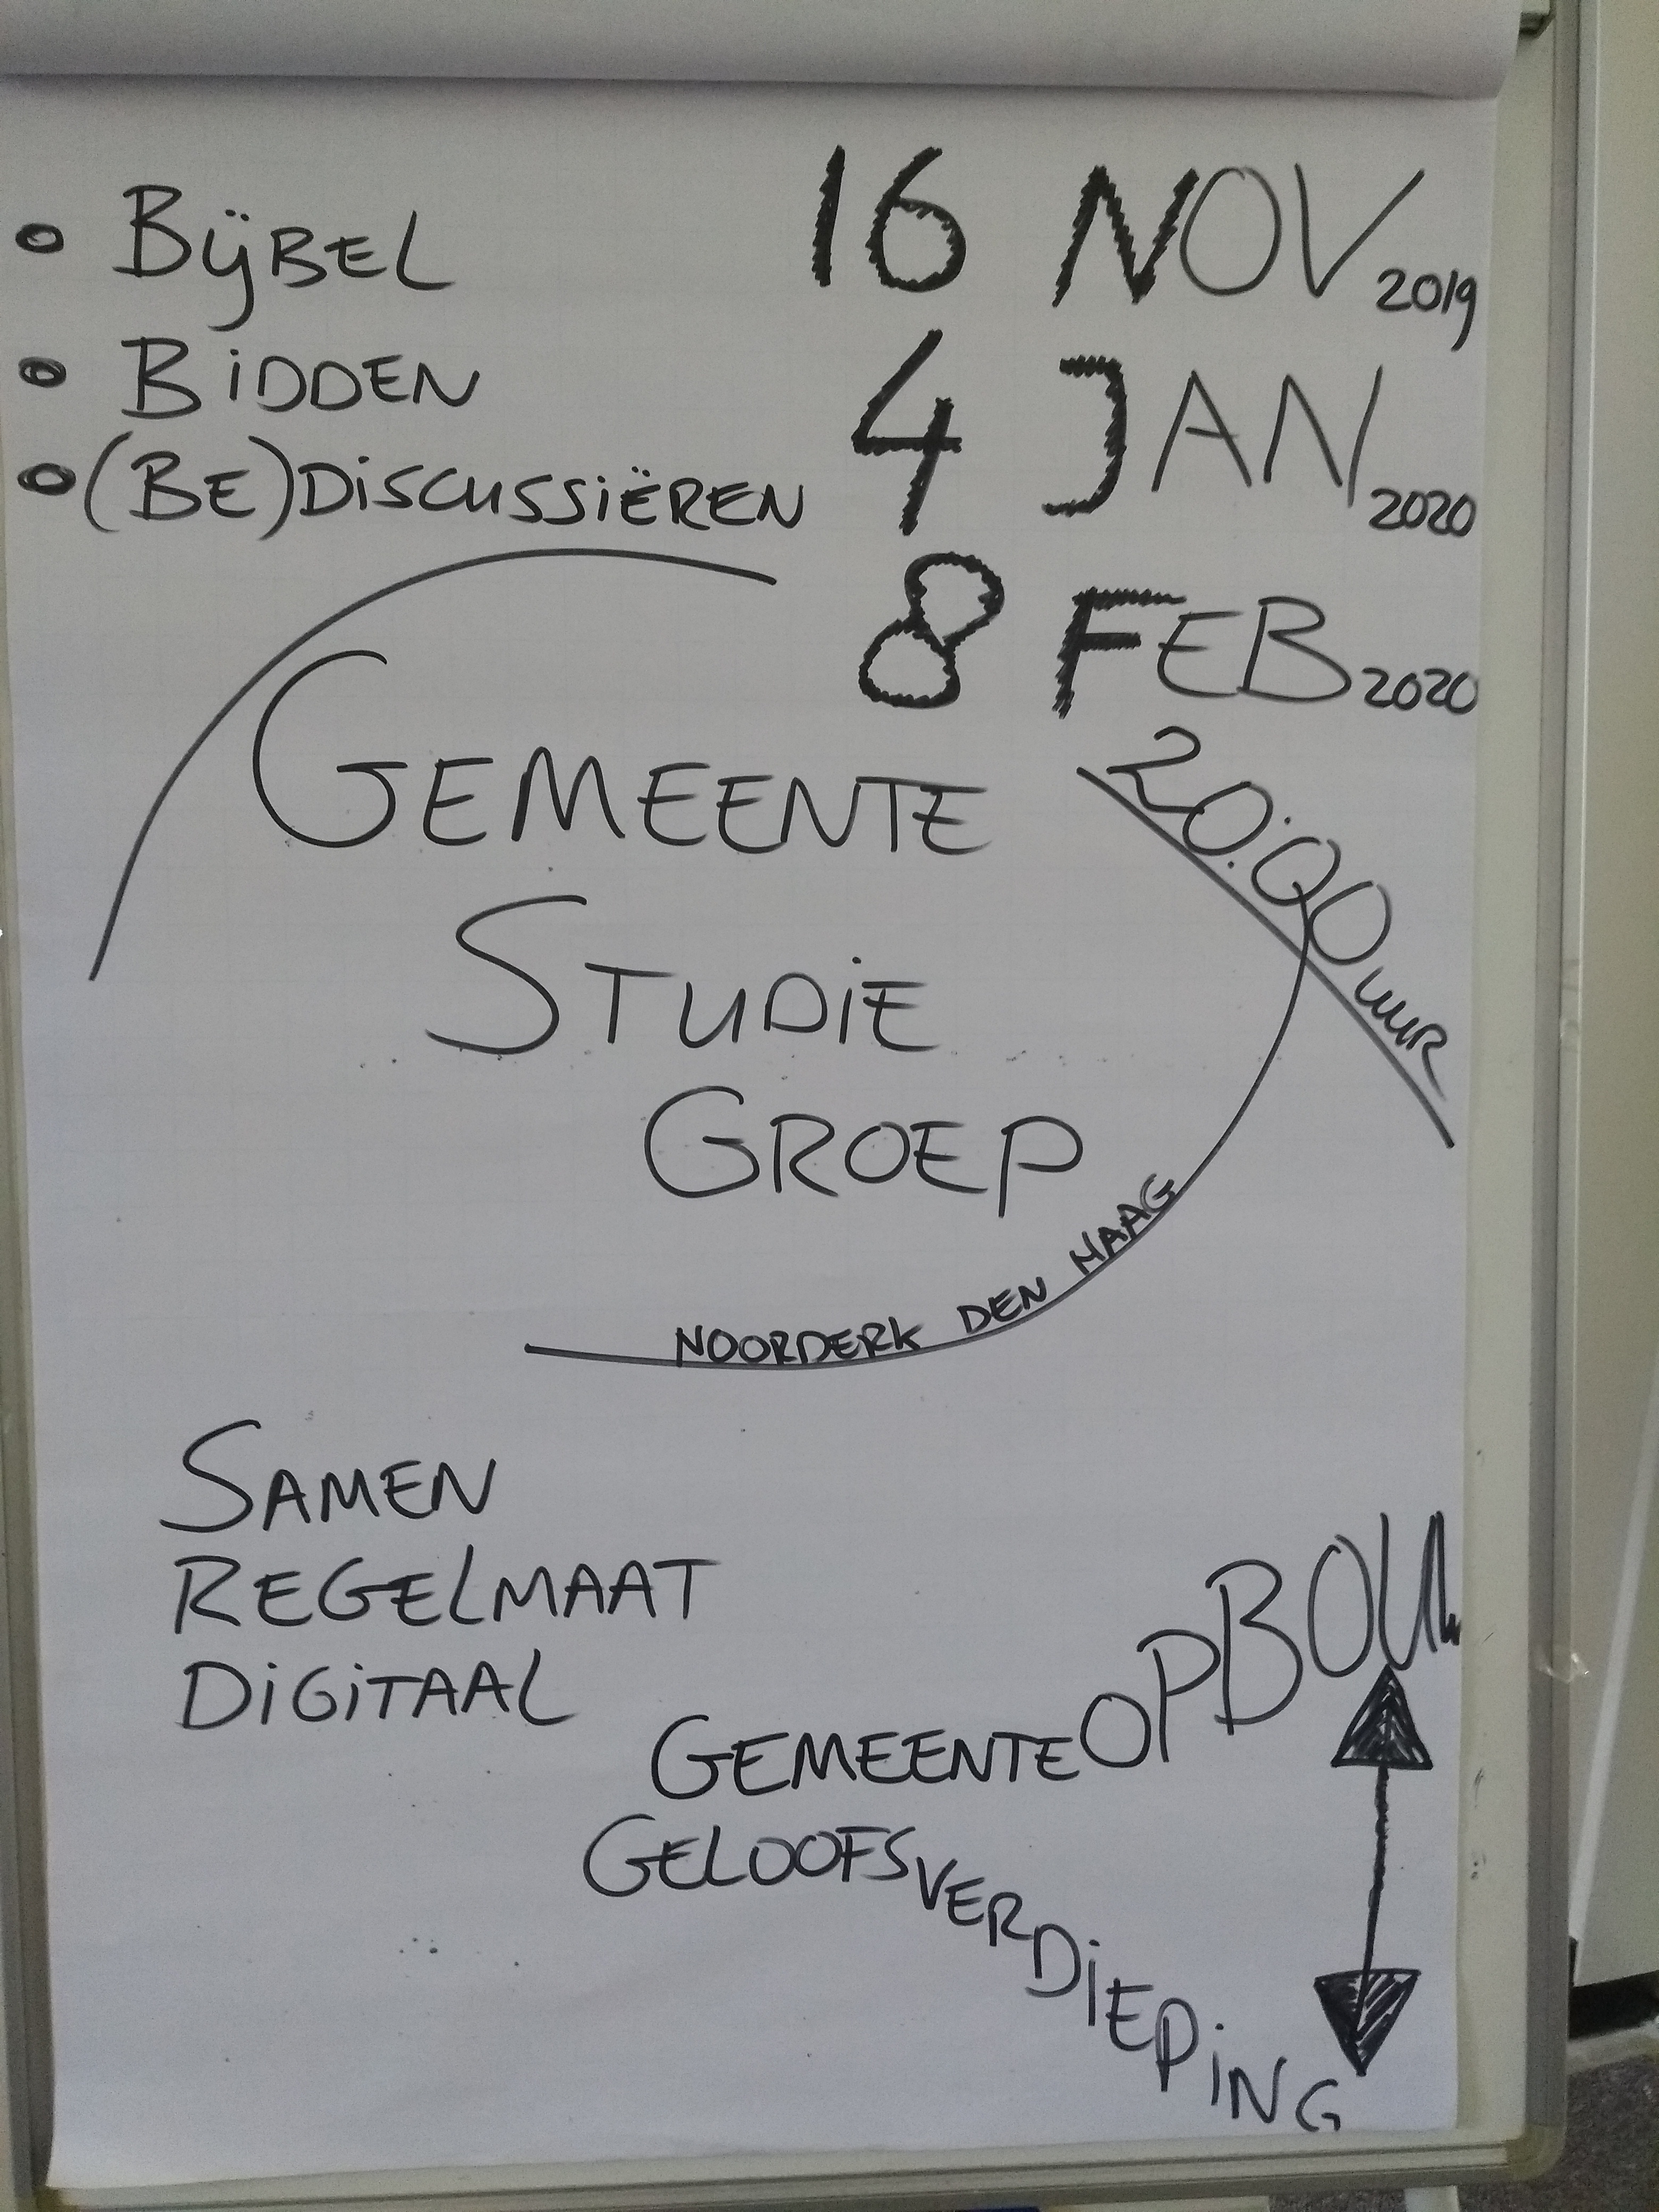 • BIJBEL
• BIDDEN
• (BE)DISCUSSIËREN
16 NOV 2019
4 JAN 2020
8 FEB 2020
20:00 UUR
GEMEENTE
STUDIE
GROEP
NOORDERK DEN HAAG
SAMEN
REGELMAAT
DIGITAAL
GEMEENTEOPBOUW
GELOOFSVERDIEPING